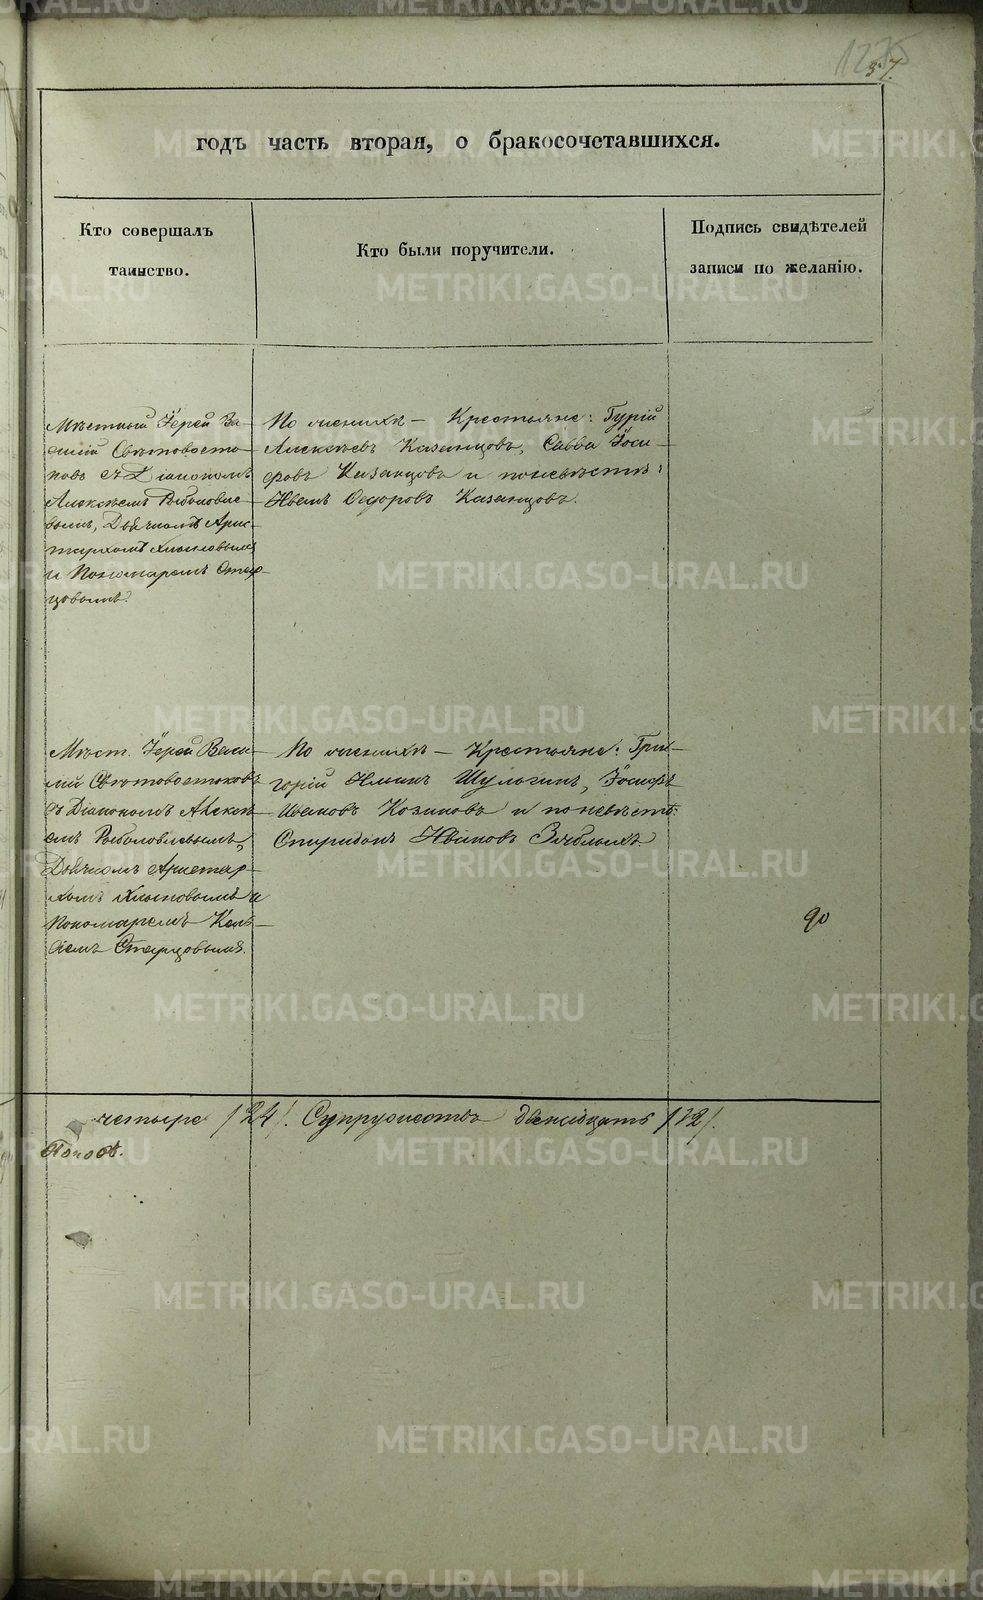 57.
годъ часть вторая, о бракосочетавшихся.
Кто совершалъ
таинство.
Кто были поручители.
Подпись свидѣтелей
записи по желанію.
Мѣстный Іерей Ва-
силій Свѣтовосто-
ковъ съ Діакономъ
Алексѣемъ Рыболовле-
вымъ, Дьячкомъ Арис-
тархомъ Хлыновымъ
и Пономаремъ Старо-
цовымъ.
По женихѣ – Крестьяне: Гурій
Алексѣевъ Казанцовъ, Савва Іоси-
фовъ Казанцовъ и по невѣстѣ:
Иванъ Ѳедоровъ Казанцовъ.
Мѣст. Іерей Васи-
лій Свѣтовостоковъ
съ Діакономъ Алексѣ-
емъ Рыболовлевымъ,
Дьячкомъ Аристар-
хомъ Хлыновымъ и
Пономаремъ
По женихѣ – Крестьяне: Гри-
горій Шулгинъ, Іосифъ
Ивановъ Козиковъ и по невѣстѣ:
Спиридонъ Ивановъ
90
четыре /24/. Супружествъ двенадцать /12/.
Поповъ.
METRIKI.GASO-URAL.RU